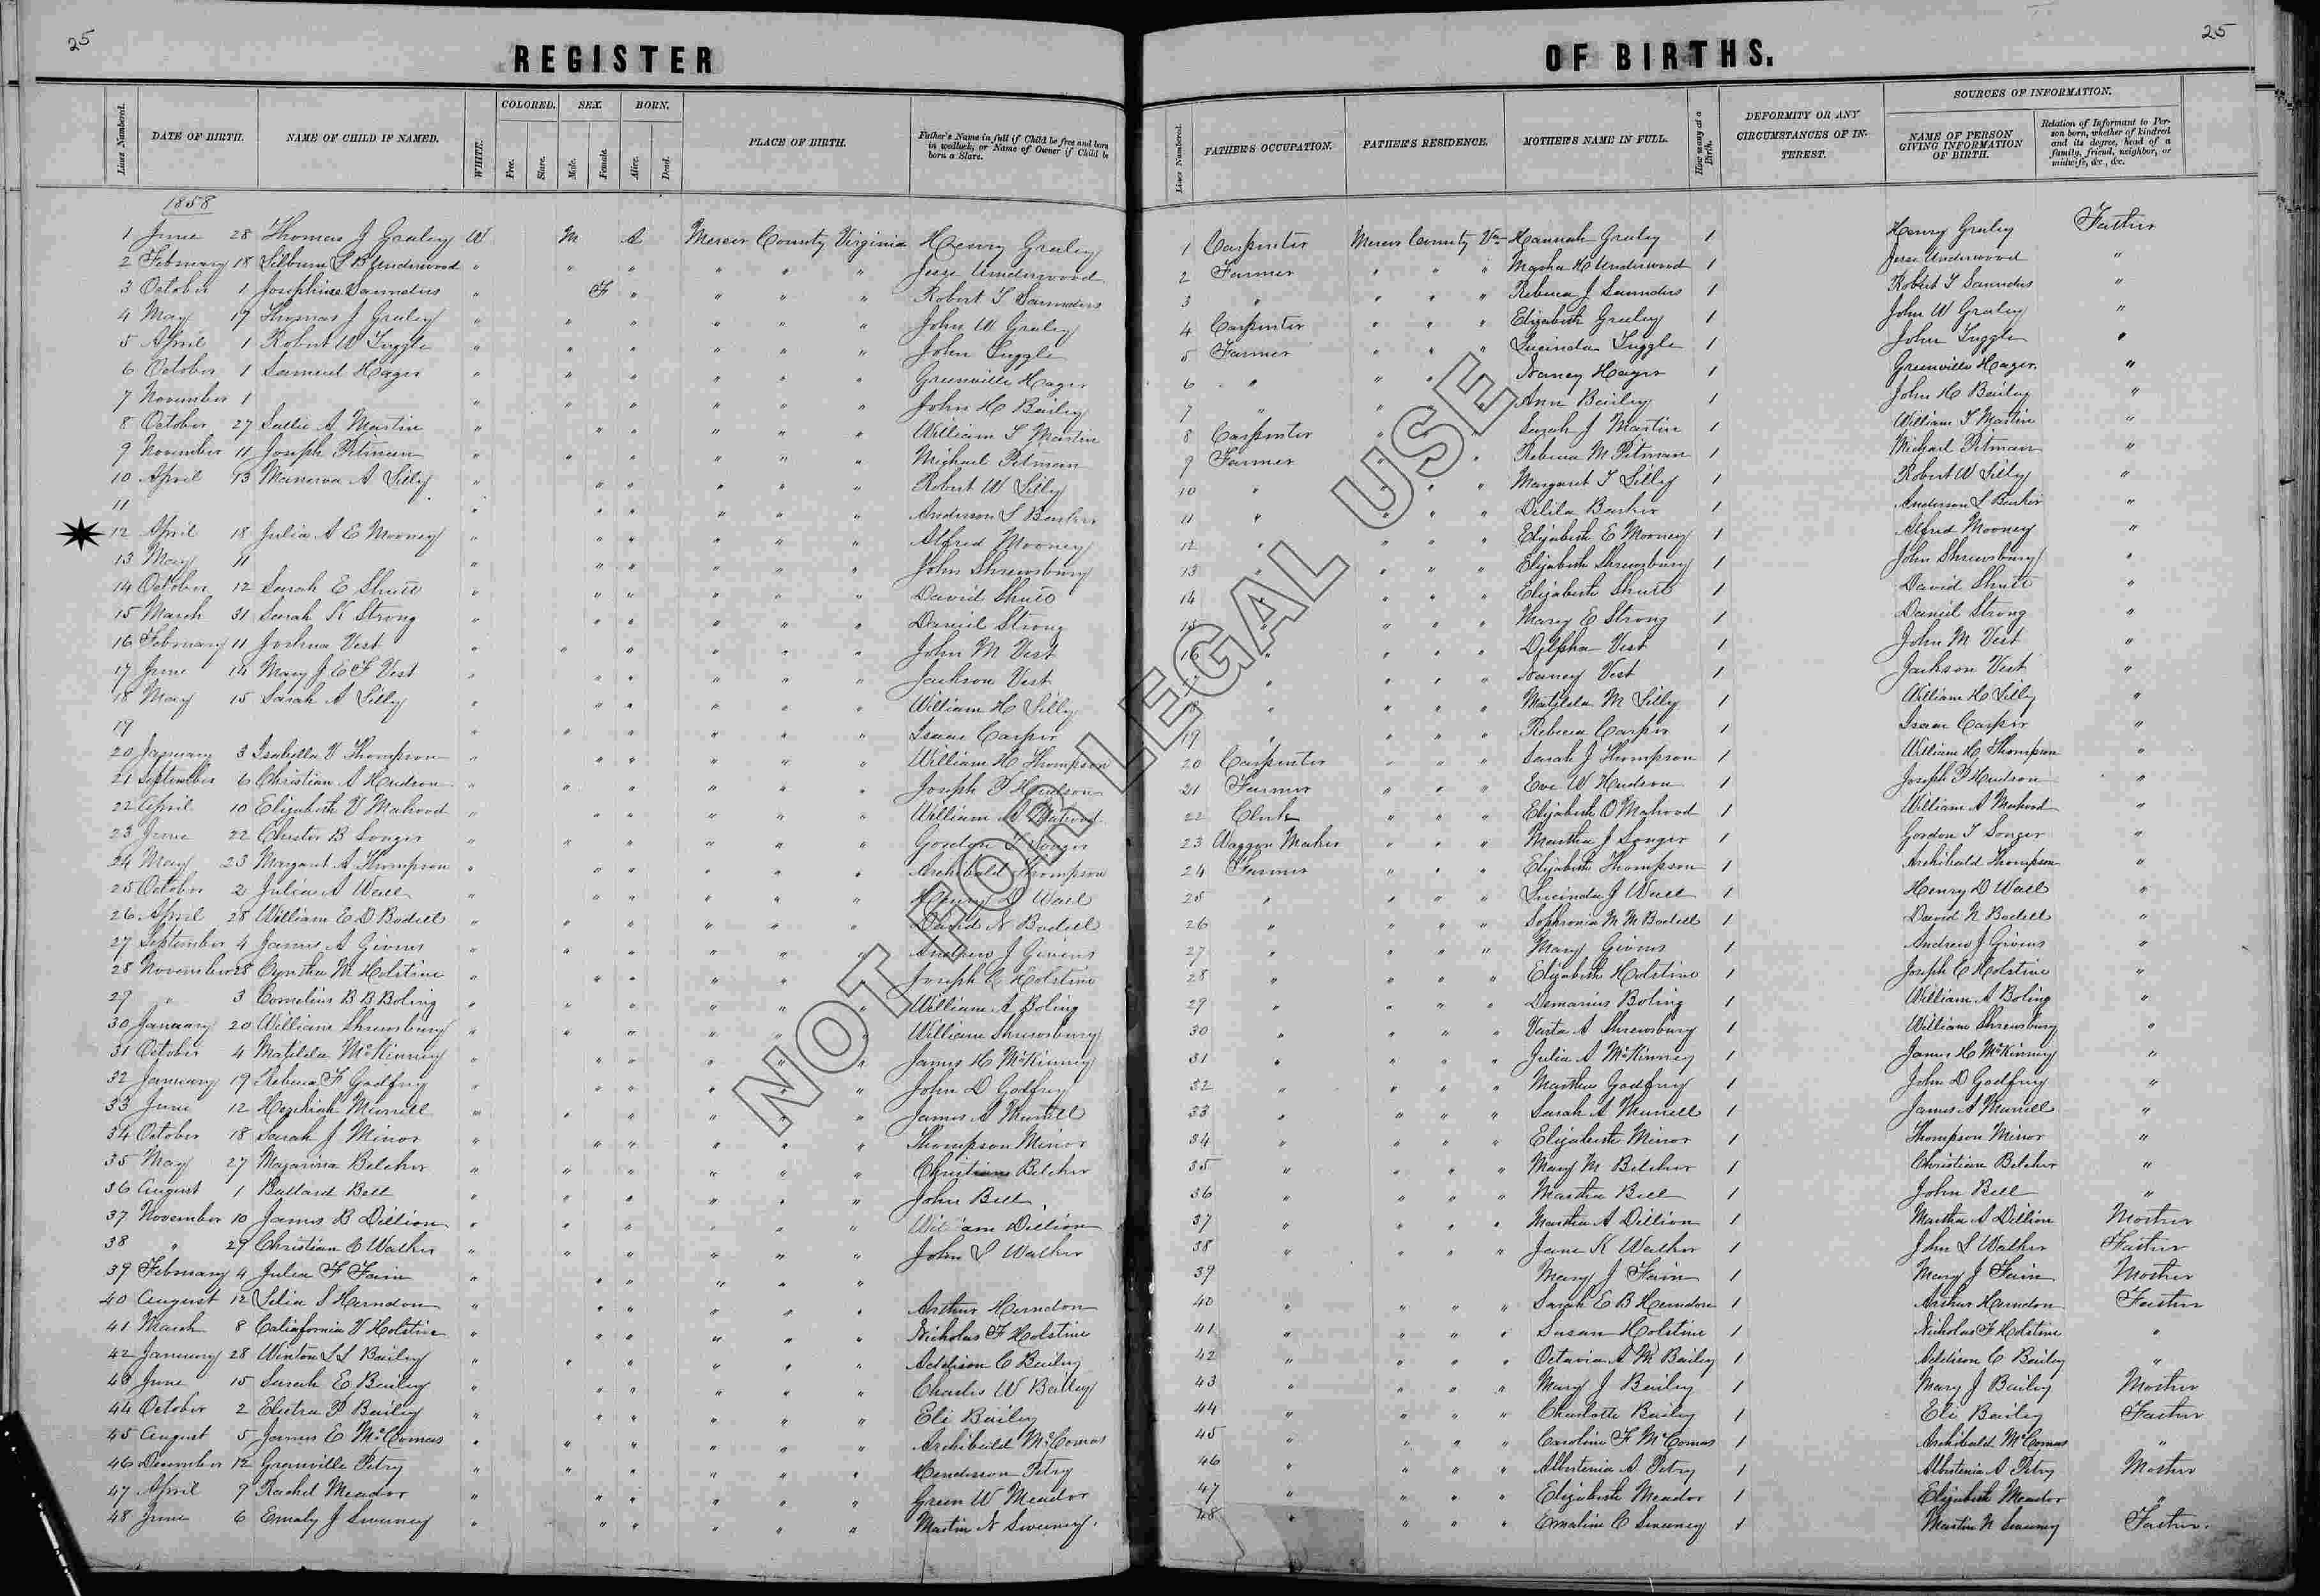 25
25
REGISTER OF BIRTHS.
Lines Numbered. DATE OF BIRTH. NAME OF CHILD IF NAMED. WHITE. COLORED. Free. Slave. SEX. Male. Female. BORN. Alive. Dead. PLACE OF BIRTH. Father's Name in full if Child be free and born in wedlock, or Name of Owner if Child be born a Slave.
Lines Numbered. FATHER'S OCCUPATION. FATHER'S RESIDENCE. MOTHER'S NAME IN FULL. How many at a Birth. DEFORMITY OR ANY CIRCUMSTANCES OF INTEREST. SOURCES OF INFORMATION. NAME OF PERSON GIVING INFORMATION OF BIRTH. Relation of Informant to Person born, whether of kindred and its degree, head of a family, friend, neighbor, or midwife, &c., &c.
1858
1 June 28 Thomas J Graley W M A Mercer County Virginia Henry Graley
2 February 18 Underwood " " " " " " Jesse Underwood
3 October 1 Josephine Saunders " F " " " " Robert T Saunders
4 May 19 Thomas J Graley " " " " " " John W Graley
5 April 1 Robert W Tuggle " " " " " " John Tuggle
6 October 1 Samuel Hager " " " " " " Greenville Hager
7 November 1 " " " " " " John H Bailey
8 October 27 Sallie A Martin " " " " " " William T Martin
9 November 11 Joseph Pitman " " " " " " Michael Pitman
10 April 13 Manerva A Lilly " " " " " " Robert W Lilly
11 " " " " " " Anderson L Barker
12 April 18 Julia A E Mooney " " " " " " Alfred Mooney
13 May 11 " " " " " " John Shrewsbury
14 October 12 Sarah E Shute " " " " " " David Shute
15 March 31 Sarah K Strong " " " " " " Daniel Strong
16 February 11 Joshua Vest " " " " " " John M Vest
17 June 14 Mary J E F Vest " " " " " " Jackson Vest
18 May 15 Sarah A Lilly " " " " " " William H Lilly
19 " " " " " " Isaac Casper
20 January 3 Isabella V Thompson " " " " " " William H Thompson
21 September 6 Christian A Hudson " " " " " " Joseph P Hudson
22 April 10 Elizabeth V Mahood " " " " " " William A Mahood
23 June 22 Chester B Songer " " " " " " Gordon T Songer
24 May 23 Margaret A Thompson " " " " " " Archibald Thompson
25 October 2 Julia A Wall " " " " " " Henry D Wall
26 April 28 William E D Bodell " " " " " " David N Bodell
27 September 4 James A Givens " " " " " " Andrew J Givens
28 November 28 Cyntha M Holstine " " " " " " Joseph C Holstine
29 " 3 Cornelius B B Boling " " " " " " William A Boling
30 January 20 William Shrewsbury " " " " " " William Shrewsbury
31 October 4 Matilda McKinney " " " " " " James H McKinney
32 January 19 Rebecca F Godfrey " " " " " " John D Godfrey
33 June 12 Hezekiah Murrell " " " " " " James A Murrell
34 October 18 Sarah J Minor " " " " " " Thompson Minor
35 May 27 Mazarina Belcher " " " " " " Christian Belcher
36 August 1 Ballard Bell " " " " " " John Bell
37 November 10 James B Dillion " " " " " " William Dillion
38 " 29 Christian C Walker " " " " " " John S Walker
39 February 4 Julia F Fain " " " " " "
40 August 12 Lelia S Herndon " " " " " " Arthur Herndon
41 March 8 California V Holstine " " " " " " Nicholas F Holstine
42 January 28 Winton L L Bailey " " " " " " Addison C Bailey
43 June 15 Sarah E Bailey " " " " " " Charles W Bailey
44 October 2 Electra P Bailey " " " " " " Eli Bailey
45 August 5 James E McComas " " " " " " Archibald McComas
46 December 12 Granville Petry " " " " " " Henderson Petry
47 April 9 Rachel Meador " " " " " " Green W Meador
48 June 6 Emaly J Sweeney " " " " " " Martin N Sweeney
1 Carpenter Mercer County Va Hannah Graley 1 Henry Graley Father
2 Farmer " " " Martha H Underwood 1 Jesse Underwood "
3 " " " " Rebecca J Saunders 1 Robert T Saunders "
4 Carpenter " " " Elizabeth Graley 1 John W Graley "
5 Farmer " " " Lucinda Tuggle 1 John Tuggle "
6 " " " Nancy Hager 1 Greenville Hager "
7 " " Ann Bailey 1 John H Bailey "
8 Carpenter " " Sarah J Martin 1 William T Martin "
9 Farmer " " Rebecca M Pitman 1 Michael Pitman "
10 " " " " Margaret T Lilly 1 Robert W Lilly "
11 " " " " Delila Barker 1 Anderson L Barker "
12 " " " " Elizabeth E Mooney 1 Alfred Mooney "
13 " " " " Elizabeth Shrewsbury 1 John Shrewsbury "
14 " " " " Elizabeth Shute 1 David Shute "
15 " " " " Mary E Strong 1 Daniel Strong "
16 " " " " Delpha Vest 1 John M Vest "
" " " " Nancy Vest 1 Jackson Vest "
18 " " " " Matilda M Lilly 1 William H Lilly "
19 " " " " Rebecca Casper 1 Isaac Casper "
20 Carpenter " " " Sarah J Thompson 1 William H Thompson "
21 Farmer " " " Eve W Hudson 1 Joseph P Hudson "
22 Clerk " " " Elizabeth O Mahood 1 William A Mahood "
23 Waggon Maker " " " Martha J Songer 1 Gordon T Songer "
24 Farmer " " " Elizabeth Thompson 1 Archibald Thompson "
25 " " " " Lucinda J Wall 1 Henry D Wall "
26 " " " " Sophronia M M Bodell 1 David N Bodell "
27 " " " " Mary Givens 1 Andrew J Givens "
28 " " " " Elizabeth Holstine 1 Joseph C Holstine "
29 " " " " Demarius Boling 1 William A Boling "
30 " " " " Vesta A Shrewsbury 1 William Shrewsbury "
31 " " " " Julia A McKinney 1 James H McKinney "
32 " " " " Martha Godfrey 1 John D Godfrey "
33 " " " " Sarah A Murrell 1 James A Murrell "
34 " " " " Elizabeth Minor 1 Thompson Minor "
35 " " " " Mary M Belcher 1 Christian Belcher "
36 " " " " Martha Bell 1 John Bell "
37 " " " " Martha A Dillion 1 Martha A Dillion Mother
38 " " " " Jane K Walker 1 John S Walker Father
39 Mary J Fain 1 Mary J Fain Mother
40 " " " " Sarah E B Herndon 1 Arthur Herndon Father
41 " " " " Susan Holstine 1 Nicholas F Holstine "
42 " " " " Octavia A M Bailey 1 Addison C Bailey "
43 " " " " Mary J Bailey 1 Mary J Bailey Mother
44 " " " " Charlotte Bailey 1 Eli Bailey Father
45 " " " " Caroline F McComas 1 Archibald McComas "
46 " " " " Albertenia A Petry 1 Albertenia A Petry Mother
47 " " " " Elizabeth Meador 1 Elizabeth Meador "
48 " " " " Emaline C Sweeney 1 Martin N Sweeney Father
NOT FOR LEGAL USE